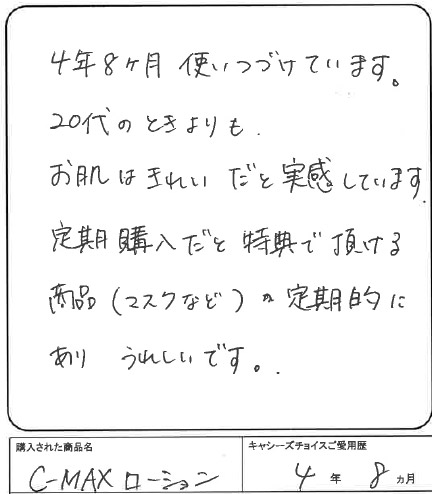 4年8ヶ月 使いつづけています。
20代のときよりも.
お肌はきれいだと実感しています.
定期購入だと特典で頂ける
商品(マスクなど)が定期的に
あり うれしいです。.
購入された商品名
キャシーズチョイスご愛用歴
C-MAXローション
4年 8ヵ月